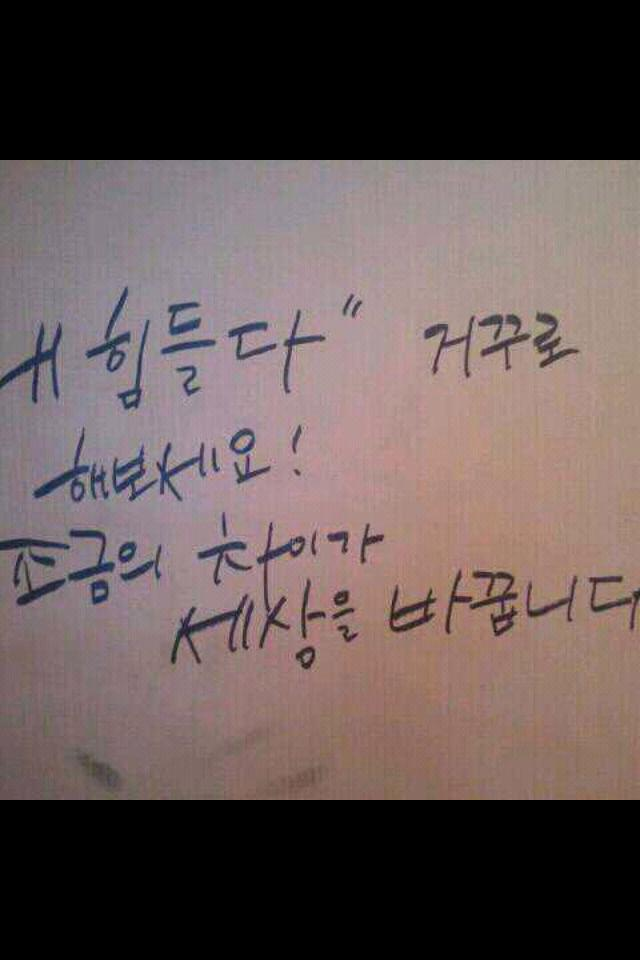 내 힘들다" 거꾸로
해보세요!
조금의 차이가
세상을 바꿉니다